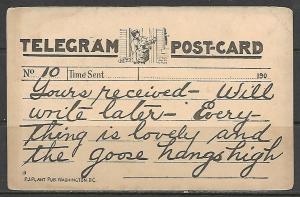 TELEGRAM POST-CARD
No 10 Time Sent 190
Yours received- Will
write later- Every-
thing is lovely and
the goose hangs high
P.J. PLANT PUB. WASHINGTON, D.C.